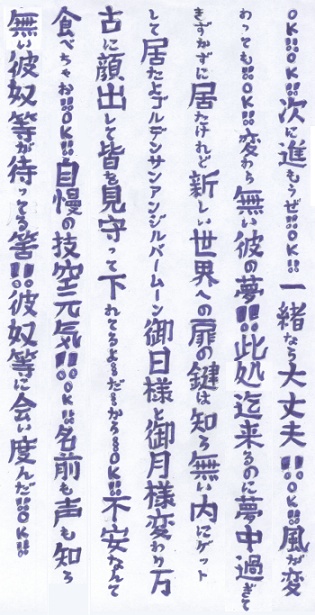 OK!!OK!!次に進もうぜ!!OK!!一緒なら大丈夫!!OK!!風が変
わっても!!OK!!変わら無い彼の夢!!此処迄来るのに夢中過ぎて
きずかずに居たけれど新しい世界への扉の鍵は知ら無い内にゲット
して居たよゴルデンサンアンジルバームーン御日様と御月様変わり万
古に顔出して皆を見守って下れてるよ~だ~から~OK!!不安なんて
食べちゃお!!OK!!自慢の技空元気!!OK!!名前も声も知ら
無い彼奴等が待ってる筈!!彼奴等に会い度んだ!!OK!!